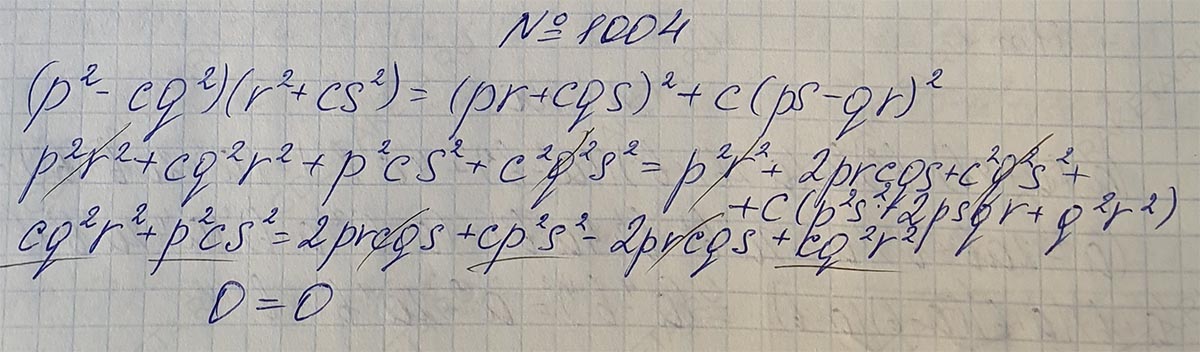 № 1004
(p²- cq²)(r²+cs²)= (pr+cqs)²+c(ps-qr)²
p²r²+cq²r²+p²cs²+c²q²s²= p²r²+ 2prcqs+c²q²s²+
+c(p²s²+2psqr+q²r²)
cq²r²+p²cs²=2prcqs+cp²s²-2prcqs+cq²r²
0=0